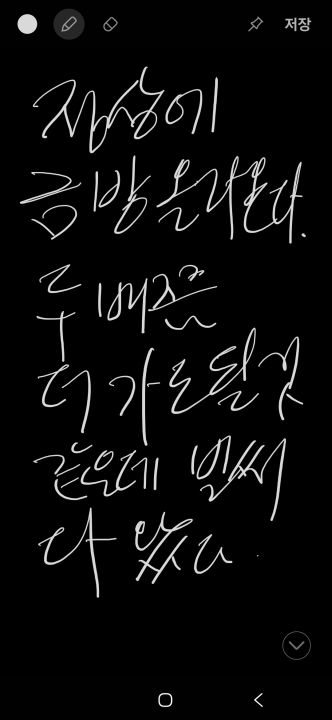 저장
정상에
금방 올라온다.
두 배쯤
더 가도 될 것
같은데 벌써
다 왔다.